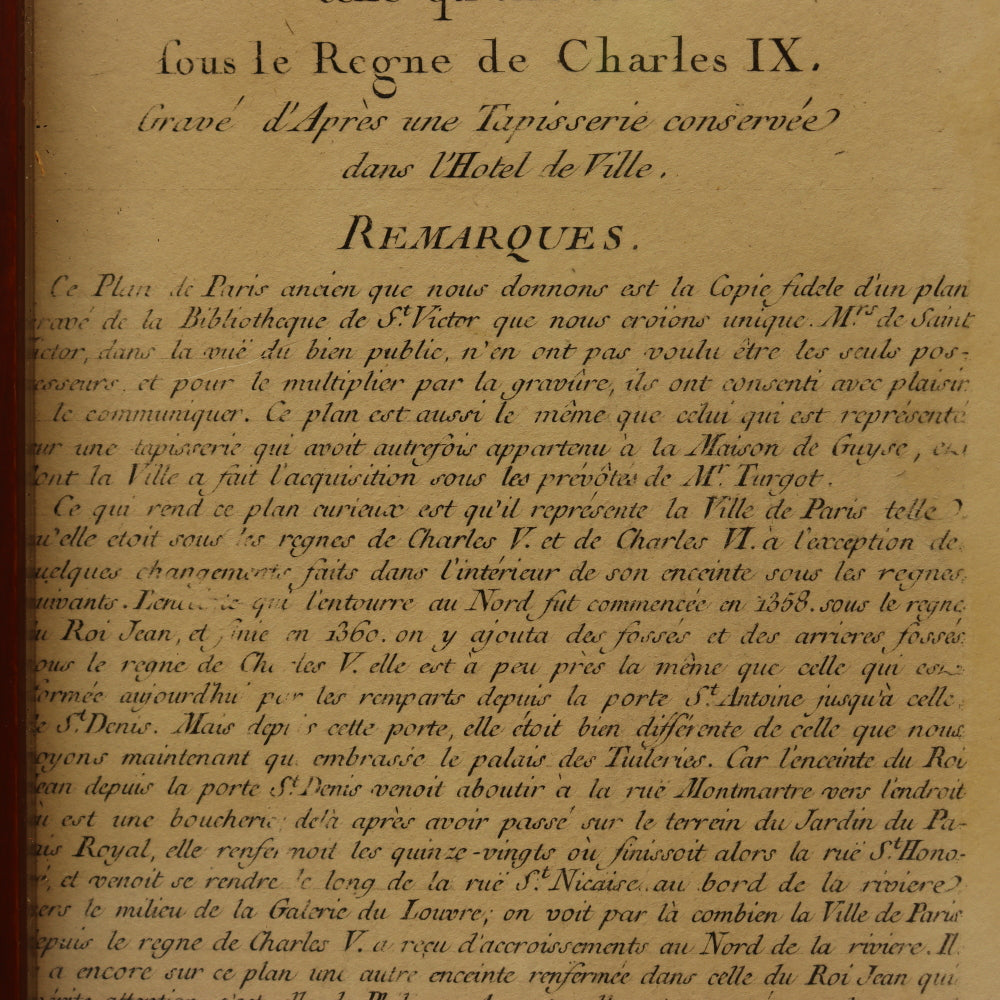 sous le Regne de Charles IX.
Gravé d'Après une Tapisserie conservée
dans l'Hotel de Ville.
REMARQUES.
Ce Plan de Paris ancien que nous donnons est la Copie fidele d'un plan
gravé de la Bibliotheque de St. Victor que nous croions unique. Mrs de Saint
Victor, dans la vuë du bien public, n'en ont pas voulu être les seuls pos-
sesseurs, et pour le multiplier par la gravûre, ils ont consenti avec plaisir
le communiquer. Ce plan est aussi le même que celui qui est représenté
sur une tapisserie qui avoit autrefois appartenu à la Maison de Guyse, et
dont la Ville a fait l'acquisition sous les prévôtés de Mr. Turgot.
Ce qui rend ce plan curieux est qu'il représente la Ville de Paris telle
qu'elle étoit sous les regnes de Charles V. et de Charles VI. à l'exception de
quelques changements faits dans l'intérieur de son enceinte sous les regnes
suivants. L'enceinte qui l'entourre au Nord fut commencée en 1358. sous le regne
du Roi Jean, et finie en 1360. on y ajouta des fossés et des arrieres fossés
sous le regne de Charles V. elle est à peu près la même que celle qui est
formée aujourd'hui par les remparts depuis la porte St. Antoine jusqu'à celle
de St. Denis. Mais depuis cette porte, elle étoit bien différente de celle que nous
voyons maintenant qui embrasse le palais des Tuileries. Car l'enceinte du Roi
Jean depuis la porte St. Denis venoit aboutir à la ruë Montmartre vers l'endroit
où est une boucherie; delà après avoir passé sur le terrein du Jardin du Pa-
lais Royal, elle renfermoit les quinze-vingts où finissoit alors la ruë St. Hono-
ré, et venoit se rendre le long de la ruë St. Nicaise au bord de la riviere
vers le milieu de la Galerie du Louvre; on voit par là combien la Ville de Paris
depuis le regne de Charles V. a reçu d'accroissements au Nord de la riviere. Il
y a encore sur ce plan une autre enceinte renfermée dans celle du Roi Jean qui